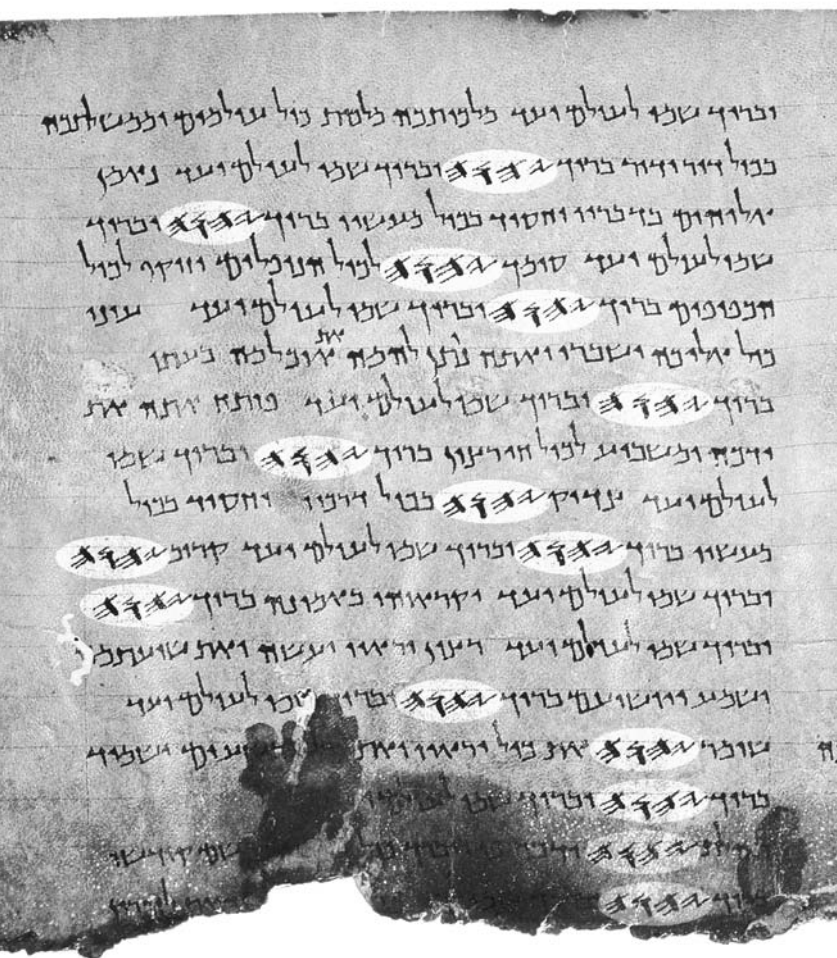 וברוך שמו לעולם ועד מלכותכה מלכות כול עולמים וממשלתכה
בכול דור ודור ברוך 𐤉𐤄𐤅𐤄 וברוך שמו לעולם ועד נאמן
אלוהים בדבריו וחסיד בכול מעשיו ברוך 𐤉𐤄𐤅𐤄 וברוך
שמו לעולם ועד סומך 𐤉𐤄𐤅𐤄 לכול הנופלים וזוקף לכול
הכפופים ברוך 𐤉𐤄𐤅𐤄 וברוך שמו לעולם ועד עיני
כול אליכה ישברו ואתה נותן להמה את אוכלמה בעתו
ברוך 𐤉𐤄𐤅𐤄 וברוך שמו לעולם ועד פותח אתה את
ידכה ומשביע לכול חי רצון ברוך 𐤉𐤄𐤅𐤄 וברוך שמו
לעולם ועד צדיק 𐤉𐤄𐤅𐤄 בכול דרכיו וחסיד בכול
מעשיו ברוך 𐤉𐤄𐤅𐤄 וברוך שמו לעולם ועד קרוב 𐤉𐤄𐤅𐤄
וברוך שמו לעולם ועד יקראוהו באמונה ברוך 𐤉𐤄𐤅𐤄
וברוך שמו לעולם ועד רצון יראיו יעשה ואת שועתמה
ישמע ויושיעם ברוך 𐤉𐤄𐤅𐤄 וברוך שמו לעולם ועד
שומר 𐤉𐤄𐤅𐤄 את כול יראיו ואת רשעים ישמיד
ברוך 𐤉𐤄𐤅𐤄 וברוך שמו לעולם
𐤉𐤄𐤅𐤄 שם קודשו
ברוך 𐤉𐤄𐤅𐤄